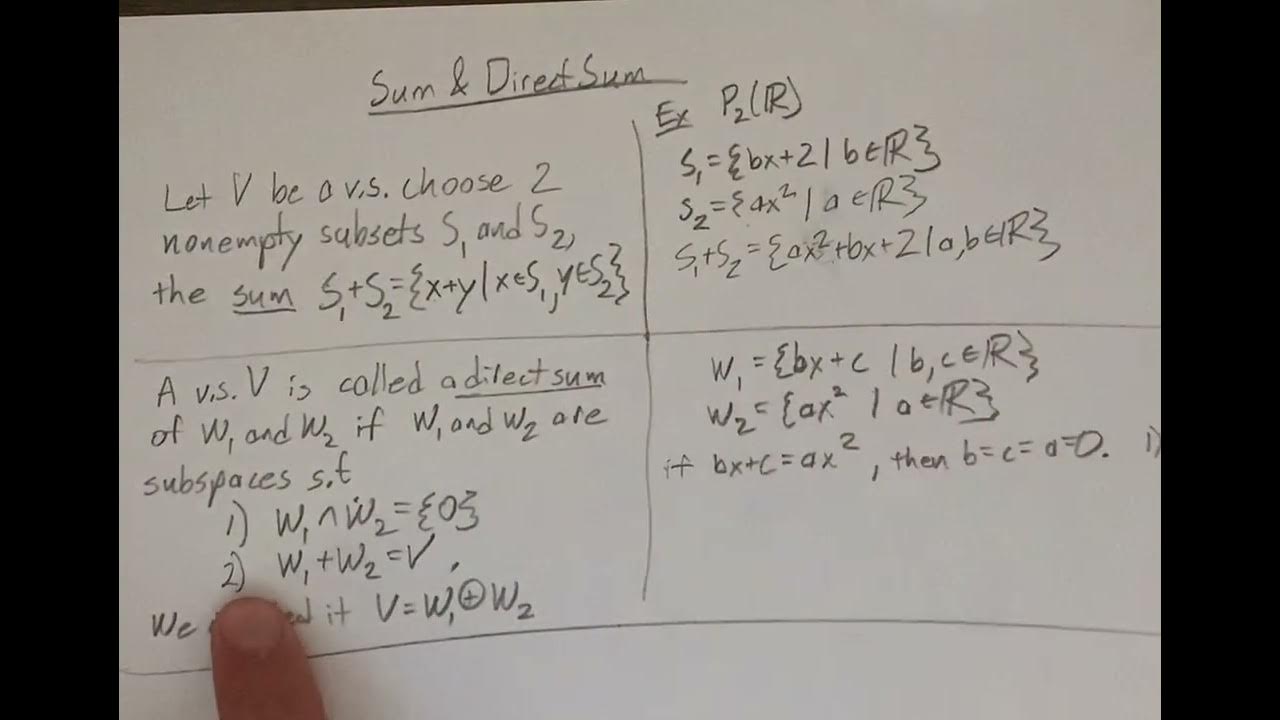 Sum & Direct Sum
Let V be a v.s. choose 2
nonempty subsets S₁ and S₂,
the sum S₁+S₂={x+y|x∈S₁,y∈S₂}
Ex P₂(ℝ)
S₁={bx+2|b∈ℝ}
S₂={ax²|a∈ℝ}
S₁+S₂={ax²+bx+2|a,b∈ℝ}
A v.s. V is called a direct sum
of W₁ and W₂ if W₁ and W₂ are
subspaces s.t
1) W₁∩W₂={0}
2) W₁+W₂=V.
We it V=W₁⊕W₂
W₁={bx+c |b,c∈ℝ}
W₂={ax² |a∈ℝ}
if bx+c=ax², then b=c=a=0. 1)